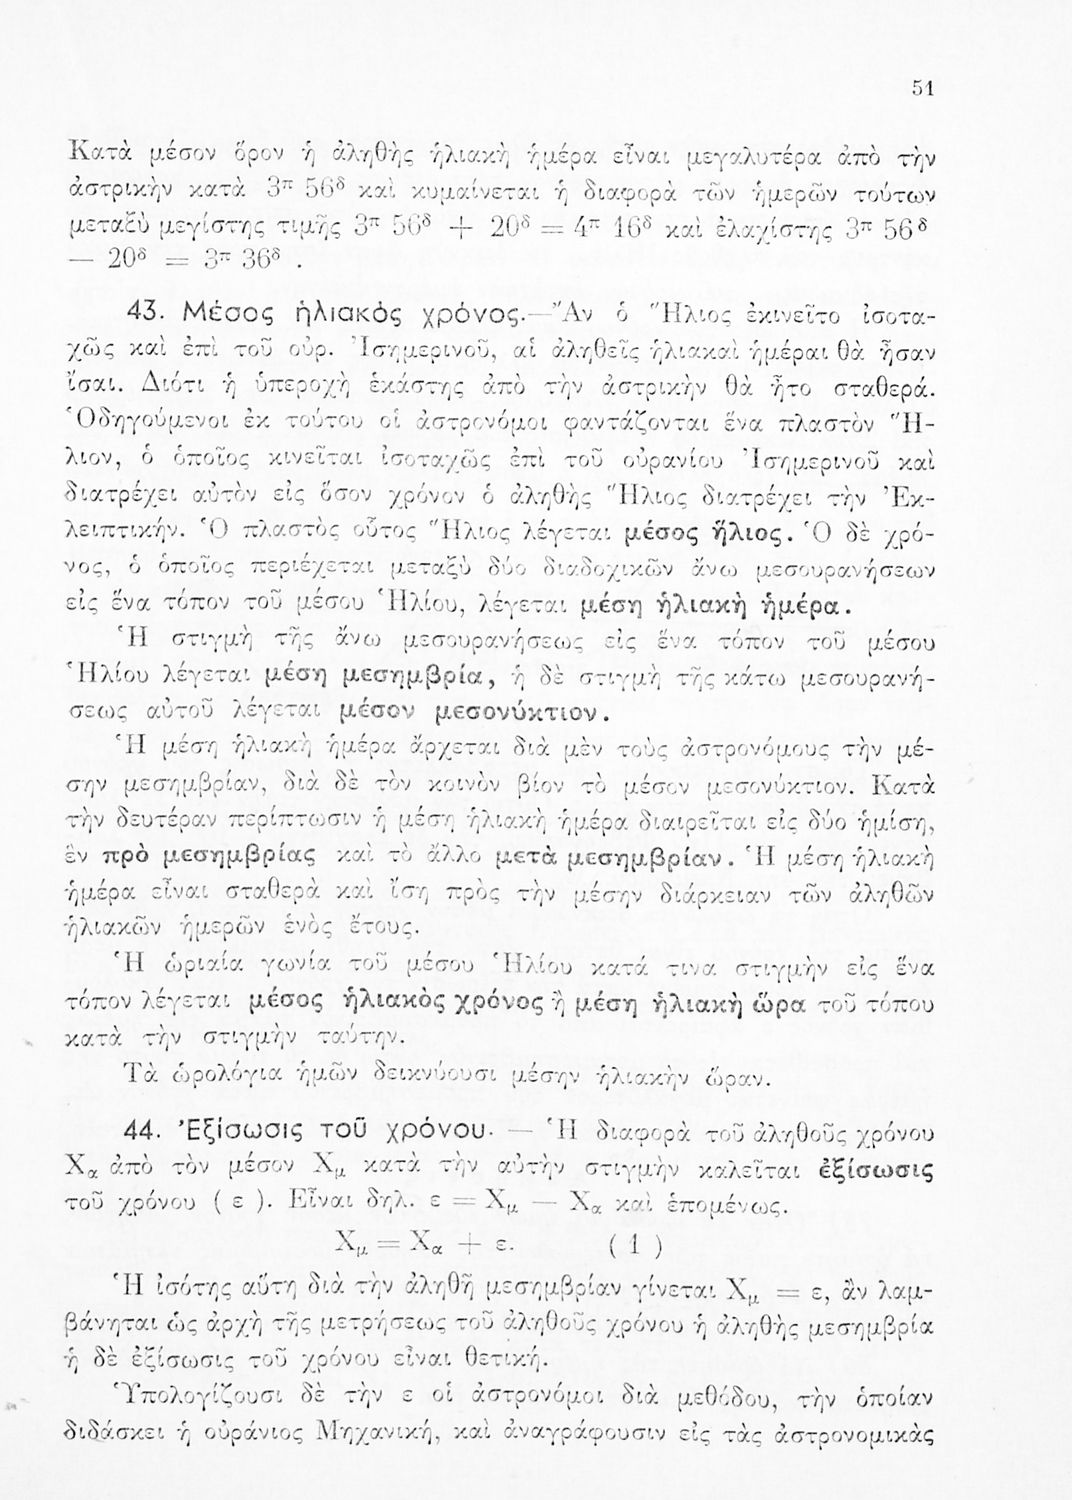 51
Κατὰ μέσον ὅρον ἡ ἀληθὴς ἡλιακὴ ἡμέρα εἶναι μεγαλυτέρα ἀπὸ τὴν
ἀστρικὴν κατὰ 3π 56δ καὶ κυμαίνεται ἡ διαφορὰ τῶν ἡμερῶν τούτων
μεταξὺ μεγίστης τιμῆς 3π 56δ + 20δ = 4π 16δ καὶ ἐλαχίστης 3π 56δ
— 20δ = 3π 36δ .
43. Μέσος ἡλιακὸς χρόνος.—Ἂν ὁ Ἥλιος ἐκινεῖτο ἰσοτα-
χῶς καὶ ἐπὶ τοῦ οὐρ. Ἰσημερινοῦ, αἱ ἀληθεῖς ἡλιακαὶ ἡμέραι θὰ ἦσαν
ἴσαι. Διότι ἡ ὑπεροχὴ ἑκάστης ἀπὸ τὴν ἀστρικὴν θὰ ἦτο σταθερά.
Ὁδηγούμενοι ἐκ τούτου οἱ ἀστρονόμοι φαντάζονται ἕνα πλαστὸν Ἥ-
λιον, ὁ ὁποῖος κινεῖται ἰσοταχῶς ἐπὶ τοῦ οὐρανίου Ἰσημερινοῦ καὶ
διατρέχει αὐτὸν εἰς ὅσον χρόνον ὁ ἀληθὴς Ἥλιος διατρέχει τὴν Ἐκ-
λειπτικήν. Ὁ πλαστὸς οὗτος Ἥλιος λέγεται μέσος ἥλιος. Ὁ δὲ χρό-
νος, ὁ ὁποῖος περιέχεται μεταξὺ δύο διαδοχικῶν ἄνω μεσουρανήσεων
εἰς ἕνα τόπον τοῦ μέσου Ἡλίου, λέγεται μέση ἡλιακὴ ἡμέρα.
Ἡ στιγμὴ τῆς ἄνω μεσουρανήσεως εἰς ἕνα τόπον τοῦ μέσου
Ἡλίου λέγεται μέση μεσημβρία, ἡ δὲ στιγμὴ τῆς κάτω μεσουρανή-
σεως αὐτοῦ λέγεται μέσον μεσονύκτιον.
Ἡ μέση ἡλιακὴ ἡμέρα ἄρχεται διὰ μὲν τοὺς ἀστρονόμους τὴν μέ-
σην μεσημβρίαν, διὰ δὲ τὸν κοινὸν βίον τὸ μέσον μεσονύκτιον. Κατὰ
τὴν δευτέραν περίπτωσιν ἡ μέση ἡλιακὴ ἡμέρα διαιρεῖται εἰς δύο ἡμίση,
ἓν πρὸ μεσημβρίας καὶ τὸ ἄλλο μετὰ μεσημβρίαν. Ἡ μέση ἡλιακὴ
ἡμέρα εἶναι σταθερὰ καὶ ἴση πρὸς τὴν μέσην διάρκειαν τῶν ἀληθῶν
ἡλιακῶν ἡμερῶν ἑνὸς ἔτους.
Ἡ ὡριαία γωνία τοῦ μέσου Ἡλίου κατά τινα στιγμὴν εἰς ἕνα
τόπον λέγεται μέσος ἡλιακὸς χρόνος ἢ μέση ἡλιακὴ ὥρα τοῦ τόπου
κατὰ τὴν στιγμὴν ταύτην.
Τὰ ὡρολόγια ἡμῶν δεικνύουσι μέσην ἡλιακὴν ὥραν.
44. Ἐξίσωσις τοῦ χρόνου. — Ἡ διαφορὰ τοῦ ἀληθοῦς χρόνου
Χα ἀπὸ τὸν μέσον Χμ κατὰ τὴν αὐτὴν στιγμὴν καλεῖται ἐξίσωσις
τοῦ χρόνου ( ε ). Εἶναι δηλ. ε = Χμ — Χα καὶ ἑπομένως.
Χμ = Χα + ε. ( 1 )
Ἡ ἰσότης αὕτη διὰ τὴν ἀληθῆ μεσημβρίαν γίνεται Χμ = ε, ἂν λαμ-
βάνηται ὡς ἀρχὴ τῆς μετρήσεως τοῦ ἀληθοῦς χρόνου ἡ ἀληθὴς μεσημβρία
ἡ δὲ ἐξίσωσις τοῦ χρόνου εἶναι θετική.
Ὑπολογίζουσι δὲ τὴν ε οἱ ἀστρονόμοι διὰ μεθόδου, τὴν ὁποίαν
διδάσκει ἡ οὐράνιος Μηχανική, καὶ ἀναγράφουσιν εἰς τὰς ἀστρονομικὰς